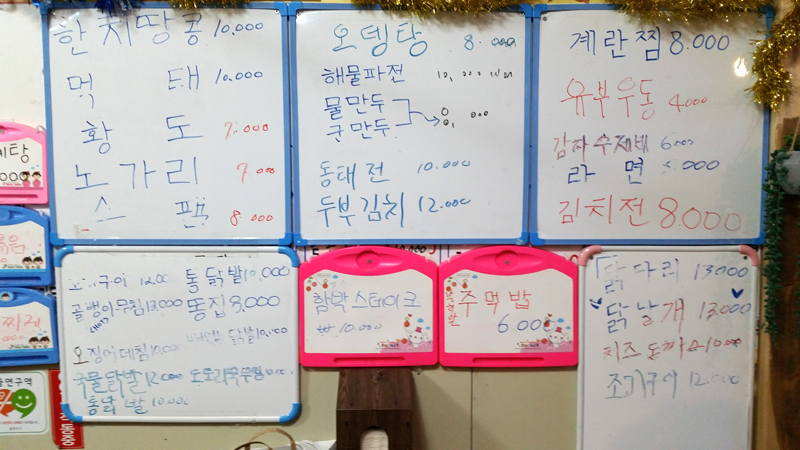 한치땅콩 10.000
먹태 10.000
황도 7.000
노가리 7.000
스팸 8.000
오뎅탕 8.000
해물파전 10,000
물만두
군만두
동태전 10.000
두부김치 12.000
계란찜 8.000
유부우동 4000
감자수제비 6.000
라면
김치전 8.000
통닭발 10.000
골뱅이무침 13.000
똥집 8.000
오징어데침
국물닭발 12.000 도토리묵무침
통닭발 10.000
함박스테이크
₩ 10.000
주먹밥
6.000
닭다리 13000
닭날개 13.000
치즈돈까스 10.000
조기구이 12.000